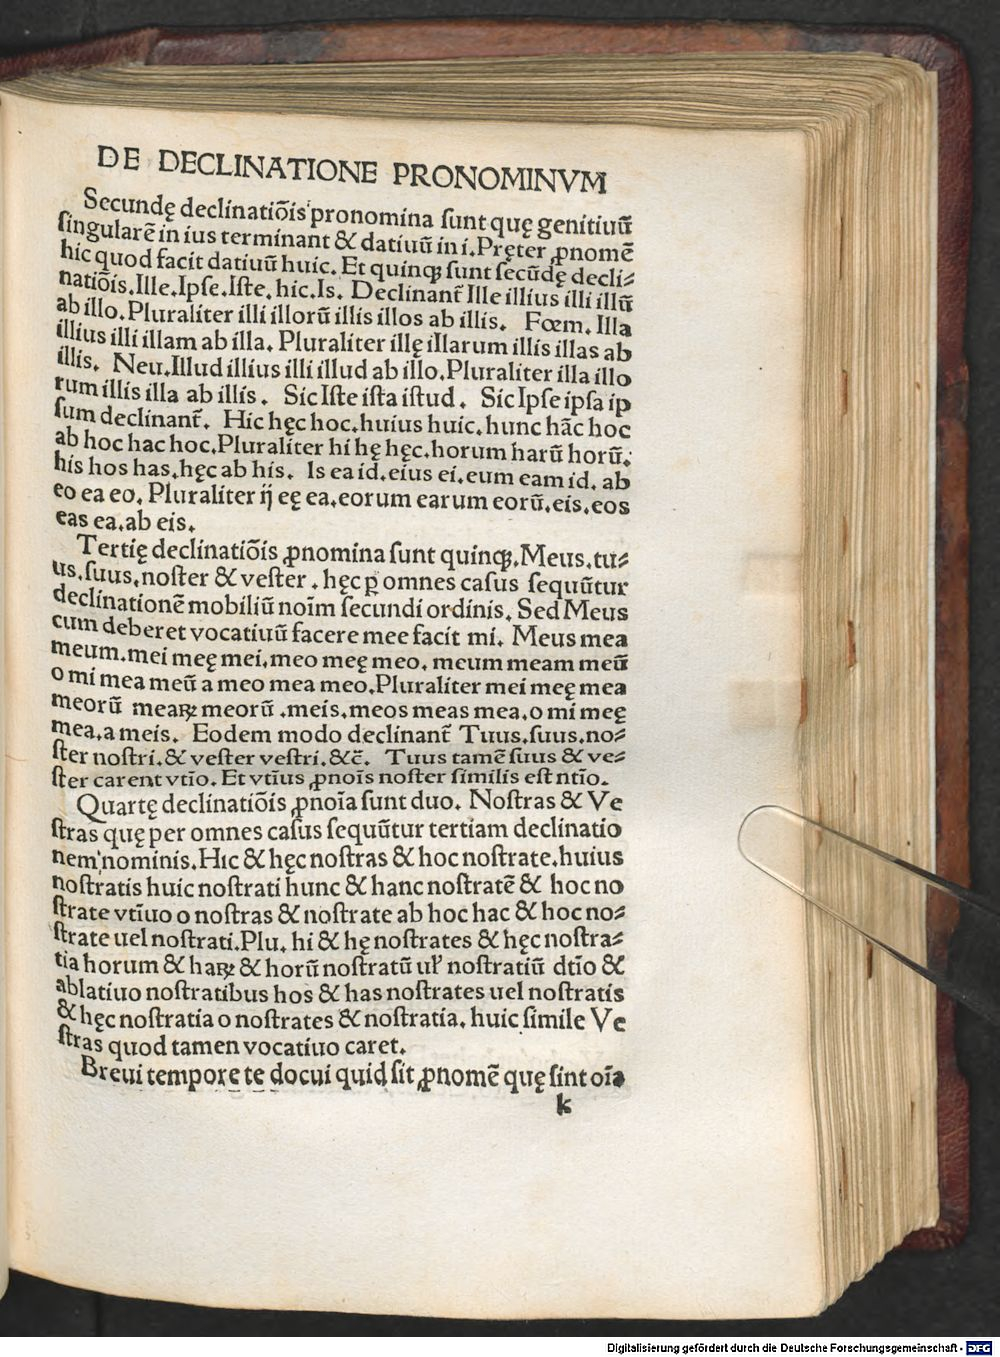 DE DECLINATIONE PRONOMINVM
Secundę declinatiõis pronomina ſunt quę genitiuũ
ſingularẽ in ius terminant & datiuũ in i. Pręter ꝓnomẽ
hic quod facit datiuũ huic. Et quinqꝫ ſunt ſecũdę decli⸗
natiõis. Ille. Ipſe. Iſte. hic. Is. Declinant̃ Ille illius illi illũ
ab illo. Pluraliter illi illorũ illis illos ab illis. Fœm. Illa
illius illi illam ab illa. Pluraliter illę illarum illis illas ab
illis. Neu. Illud illius illi illud ab illo. Pluraliter illa illo
rum illis illa ab illis. Sic Iſte iſta iſtud. Sic Ipſe ipſa ip
ſum declinant̃. Hic hęc hoc. huius huic. hunc hãc hoc
ab hoc hac hoc. Pluraliter hi hę hęc. horum harũ horũ.
his hos has. hęc ab his. Is ea id. eius ei. eum eam id. ab
eo ea eo. Pluraliter ij eę ea. eorum earum eorũ. eis. eos
eas ea. ab eis.
Tertię declinatiõis ꝓnomina ſunt quinqꝫ. Meus. tu⸗
us. ſuus. noſter & veſter . hęc ꝑ omnes caſus ſequũtur
declinationẽ mobiliũ noĩm ſecundi ordinis. Sed Meus
cum deberet vocatiuũ facere mee facit mi. Meus mea
meum. mei meę mei. meo meę meo. meum meam meũ
o mi mea meũ a meo mea meo. Pluraliter mei meę mea
meorũ meaꝝ meorũ . meis. meos meas mea. o mi meę
mea. a meis. Eodem modo declinant̃ Tuus. ſuus. no⸗
ſter noſtri. & veſter veſtri. &c̃. Tuus tamẽ ſuus & ve⸗
ſter carent vtĩo. Et vtĩus ꝓnoĩs noſter ſimilis eſt ntĩo.
Quartę declinatiõis ꝓnoĩa ſunt duo. Noſtras & Ve
ſtras quę per omnes caſus ſequũtur tertiam declinatio
nem nominis. Hic & hęc noſtras & hoc noſtrate. huius
noſtratis huic noſtrati hunc & hanc noſtratẽ & hoc no
ſtrate vtĩuo o noſtras & noſtrate ab hoc hac & hoc no⸗
ſtrate uel noſtrati. Plu. hi & hę noſtrates & hęc noſtra⸗
tia horum & haꝝ & horũ noſtratũ uł noſtratiũ dtĩo &
ablatiuo noſtratibus hos & has noſtrates uel noſtratis
& hęc noſtratia o noſtrates & noſtratia. huic ſimile Ve
ſtras quod tamen vocatiuo caret.
Breui tempore te docui quid ſit ꝓnomẽ quę ſint oĩa
k
Digitalisierung gefördert durch die Deutsche Forschungsgemeinschaft - DFG